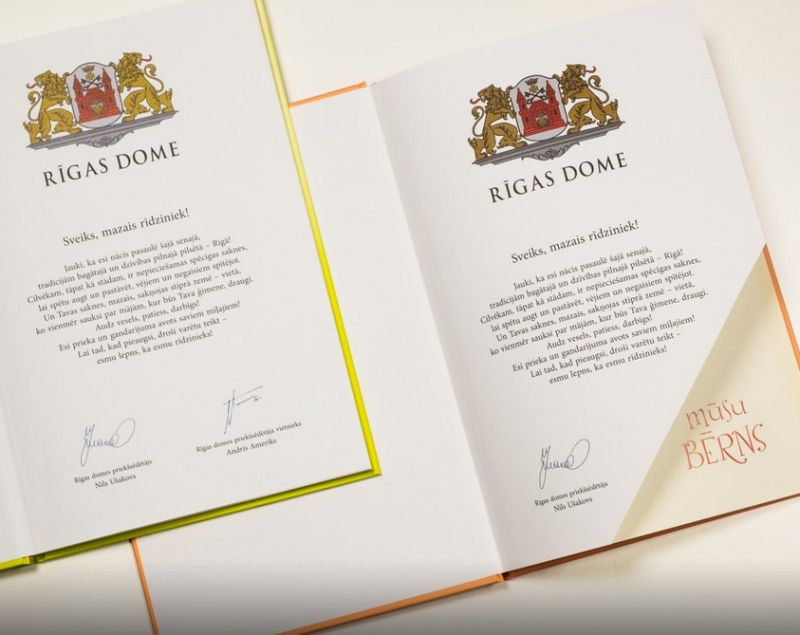 RĪGAS DOME
Sveiks, mazais rīdziniek!
Jauki, ka esi nācis pasaulē šajā senajā,
tradīcijām bagātajā un dzīvības pilnajā pilsētā – Rīgā!
Cilvēkam, tāpat kā stādam, ir nepieciešamas spēcīgas saknes,
lai spētu augt un pastāvēt, vējiem un negaisiem spītējot.
Un Tavas saknes, mazais, sakņojas stiprā zemē – vietā,
ko vienmēr sauksi par mājām, kur būs Tava ģimene, draugi.
Audz vesels, patiess, darbīgs!
Esi prieka un gandarījuma avots saviem mīļajiem!
Lai tad, kad pieaugsi, droši varētu teikt –
esmu lepns, ka esmu rīdzinieks!
Rīgas domes priekšsēdētājs
Nils Ušakovs
Rīgas domes priekšsēdētāja vietnieks
Andris Ameriks
RĪGAS DOME
Sveiks, mazais rīdziniek!
Jauki, ka esi nācis pasaulē šajā senajā,
tradīcijām bagātajā un dzīvības pilnajā pilsētā – Rīgā!
Cilvēkam, tāpat kā stādam, ir nepieciešamas spēcīgas saknes,
lai spētu augt un pastāvēt, vējiem un negaisiem spītējot.
Un Tavas saknes, mazais, sakņojas stiprā zemē – vietā,
ko vienmēr sauksi par mājām, kur būs Tava ģimene, draugi.
Audz vesels, patiess, darbīgs!
Esi prieka un gandarījuma avots saviem mīļajiem!
Lai tad, kad pieaugsi, droši varētu teikt –
esmu lepns, ka esmu rīdzinieks!
Rīgas domes priekšsēdētājs
Nils Ušakovs
mūsu
BĒRNS